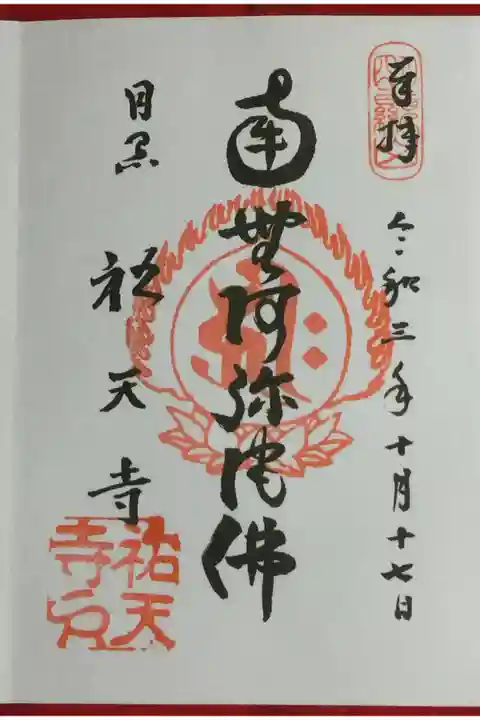 奉拝
令和三年十月十七日
南無阿弥陀佛
目黒
祐天寺
祐天
寺印